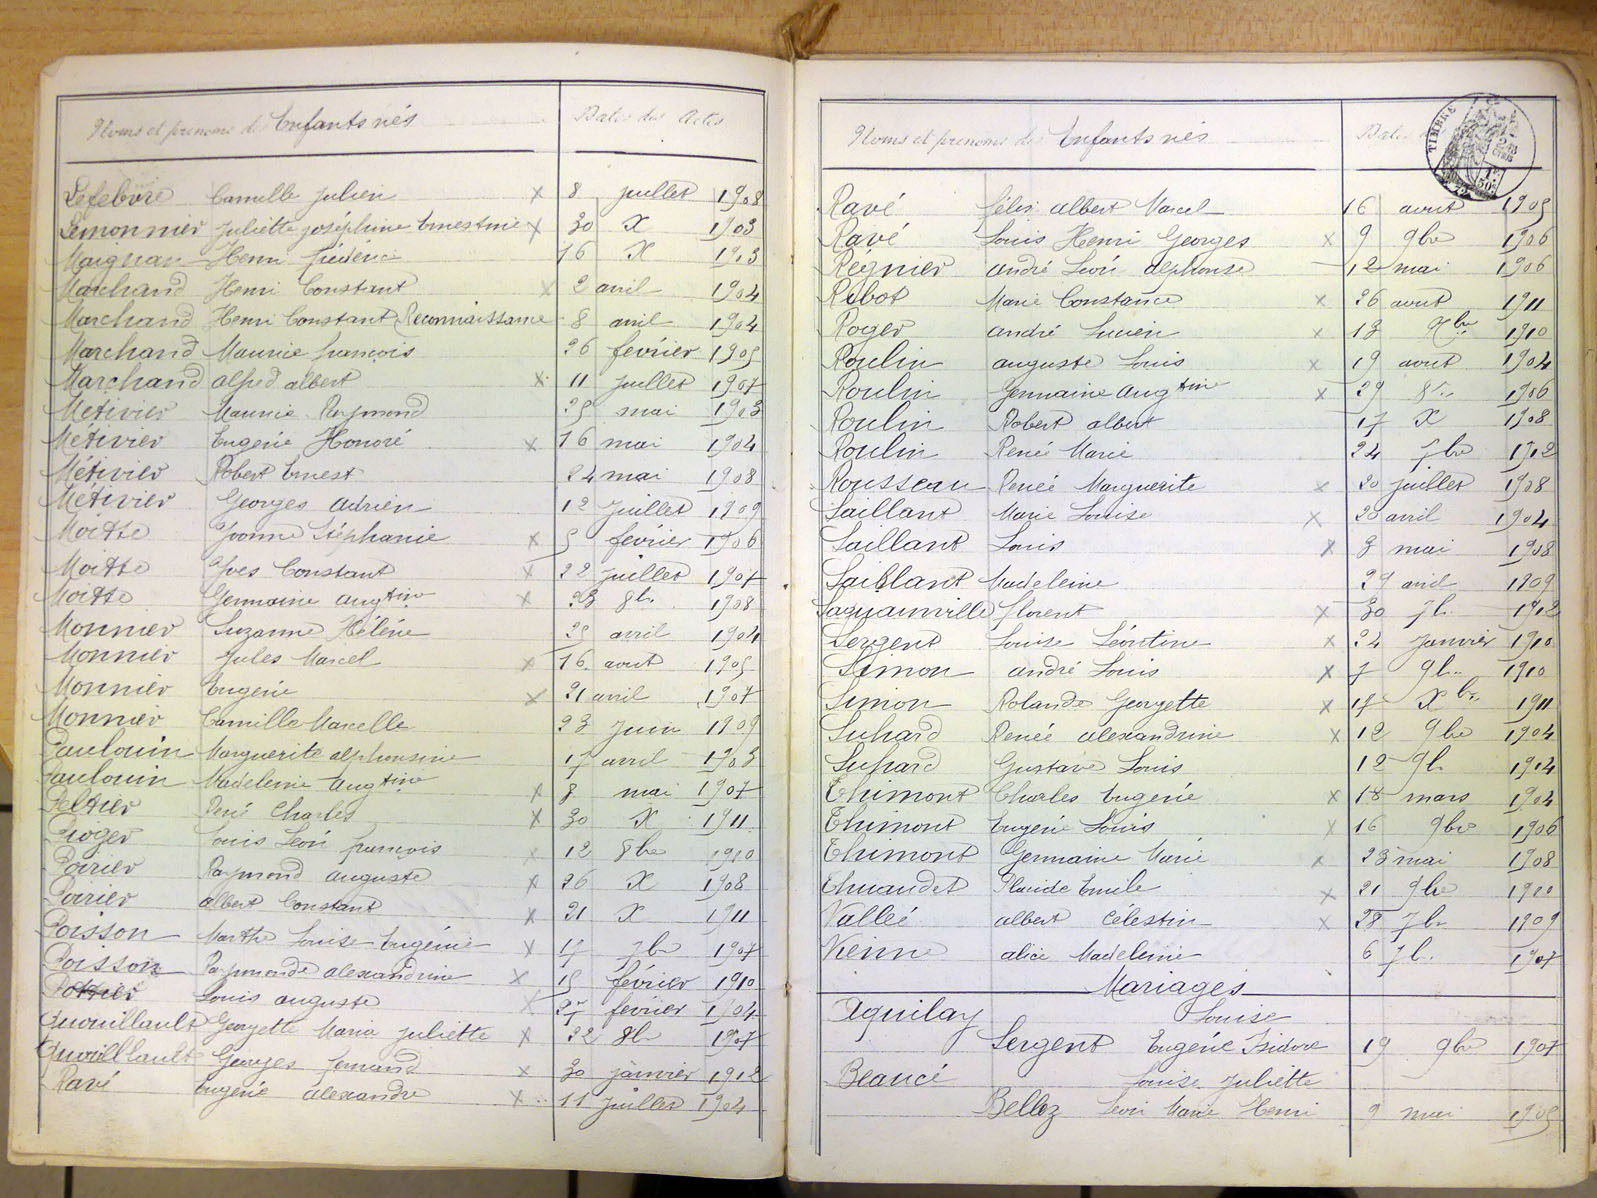 Noms et prénoms des Enfants nés Dates des Actes
Lefebvre Camille Julien x 8 juillet 1908
Lemonnier Juliette Joséphine Ernestine x 30 X 1903
Maignan Henri Frédéric 16 X 1903
Marchand Henri Constant x 2 avril 1904
Marchand Henri Constant (Reconnaissance 8 avril 1904
Marchand Maurice François 26 février 1905
Marchand Alfred Albert x 11 juillet 1907
Métivier Maurice Raymond 25 mai 1903
Métivier Eugène Honoré x 16 mai 1904
Métivier Robert Ernest 24 mai 1908
Métivier Georges Adrien 12 Juillet 1909
Moitte Yvonne Stéphanie x 5 février 1906
Moitte Yves Constant x 22 Juillet 1907
Moitte Germaine Aug.tine x 23 8b. 1908
Monnier Suzanne Hélène 25 avril 1904
Monnier Jules Marcel x 16 aout 1905
Monnier Eugénie x 21 avril 1907
Monnier Camille Marcelle 23 Juin 1909
Paulouin Marguerite Alphonsine 17 avril 1903
Paulouin Madeleine Aug.tine x 8 mai 1907
Peltier René Charles x 30 X 1911
Pioger Louis Léon François x 12 8bre 1910
Poirier Raymond Auguste x 26 X 1908
Poirier Albert Constant x 21 X 1911
Poisson Marthe Louise Eugénie x 17 7bre 1907
Poisson Raymonde Alexandrine x 15 février 1910
Pottier Louis Auguste x 27 février 1904
Quouillault Georgette Maria Juliette x 22 8b. 1907
Quouillault Georges Fernand x 30 janvier 1912
Ravé Eugène Alexandre x 11 Juillet 1904
Noms et prénoms des Enfants nés Dates
TIMBRE
Ravé Félix Albert Marcel 16 aout 1905
Ravé Louis Henri Georges x 9 9bre 1906
Régnier André Léon Alphonse 12 mai 1906
Ribot Marie Constance x 26 aout 1911
Roger André Lucien x 13 Xbre 1910
Roulin Auguste Louis x 19 aout 1904
Roulin Germaine Aug.tine x 29 8b. 1906
Roulin Robert Albert 17 X 1908
Roulin René Marie 24 7bre 1912
Rousseau Renée Marguerite x 20 juillet 1908
Saillant Marie Louise x 20 avril 1904
Saillant Louis x 3 mai 1908
Saillant Madeleine 29 avril 1909
Saquainville Florent x 30 7b. 1912
Sergent Louise Léontine x 24 Janvier 1910
Simon André Louis x 7 9b. 1910
Simon Rolande Georgette x 17 Xbre 1911
Suhard Renée Alexandrine x 12 9bre 1904
Suhard Gustave Louis 12 9b. 1904
Thimont Charles Eugène x 18 mars 1904
Thimont Eugène Louis x 16 9bre 1906
Thimont Germaine Marie x 23 mai 1908
Thuaudet Placide Emile x 21 9bre 1910
Vallée Albert Célestin x 28 7bre 1909
Vienne Alice Madeleine 6 7b. 1907
Mariages
Aguilay Louise
Sergent Eugène Isidore 19 9bre 1907
Beaucé Louise Juliette
Bellez Léon Marie Henri 9 mai 1905